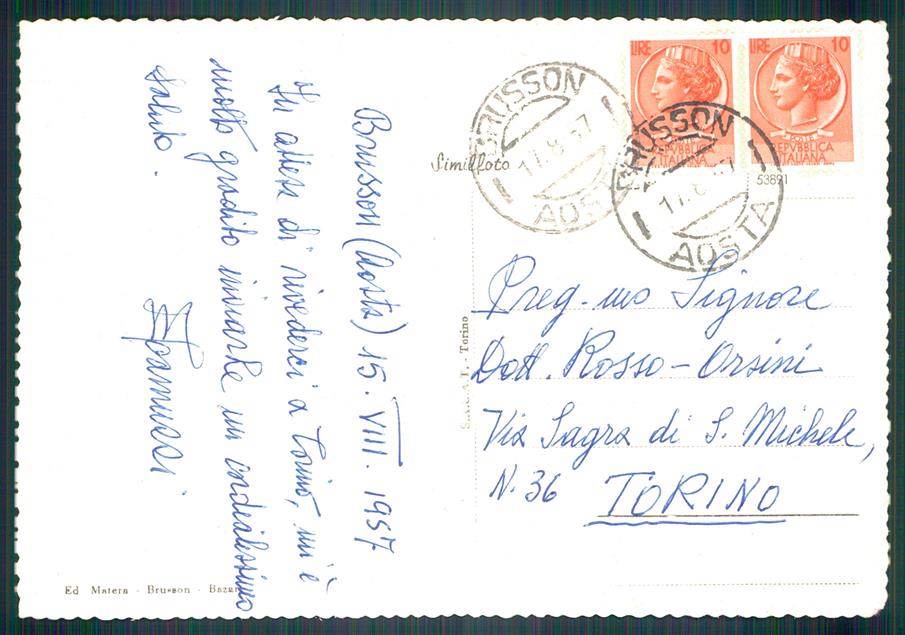 Brusson (Aosta) 15. VIII. 1957
In attesa di rivederci a Torino, mi è
molto gradito inviarle un cordialissimo
saluto.
LIRE 10
POSTE
REPVBBLICA
ITALIANA
LIRE 10
POSTE
REPVBBLICA
ITALIANA
BRUSSON
17.8.57
AOSTA
BRUSSON
17.8.57
AOSTA
Simílfoto
53891
Preg.mo Signore
Dott. Rosso-Orsini
Via Sagra di S. Michele,
N. 36 TORINO
Torino
Ed Matera - Brusson - Bazar